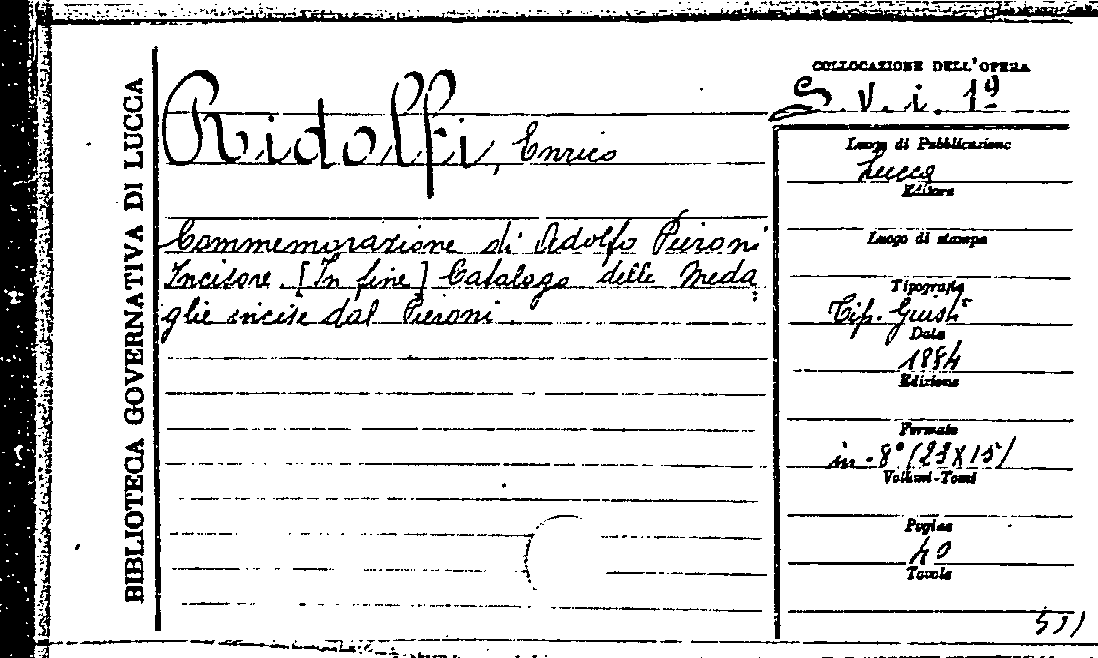 BIBLIOTECA GOVERNATIVA DI LUCCA
Ridolfi, Enrico
Commemorazione di Adolfo Pieroni
Incisore. [In fine] Catalogo delle Meda
glie incise dal Pieroni.
COLLOCAZIONE DELL'OPERA
S. V. i. 19
Luogo di Pubblicazione
Lucca
Editore
Luogo di stampa
Tipografia
Tip. Giusti
Data
1884
Edizione
Formato
in-8° (23X15)
Volumi-Tomi
Pagine
40
Tavole